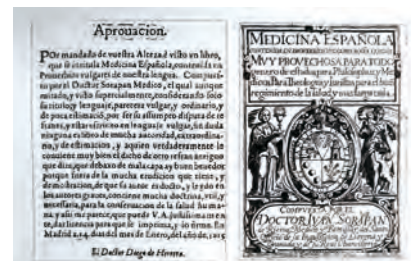 Aprouacion.
POr mandado de vuestra Alteza è visto vn libro,
que se intitula Medicina Española, contenida en
Prouerbios vulgares de nuestra lengua. Compues-
to por el Doctor Sorapan Medico, el qual aunque
mirado, y visto superficialmente, considerando solo
su titulo y lenguaje, parecera vulgar, y ordinario, y
de poca estimació, por ser su assumpto disputa de re
franes, y estar escrito en lenguaje vulgar, sin duda
ninguna es libro de mucha autoridad, extraordina-
rio, y de estimacion, y a quien verdaderamente le
conuiene muy bien el dicho de otro refran antiguo
que dize, que debaxo de mala capa ay buen beuedor
porque fuera de la mucha erudicion que tiene, y
demostracion, de que su autor es docto, y leydo en
los autores graues, contiene mucha doctrina, vtil, y
necessaria, para la conseruacion de la salud huma-
na y assi me parece, que puede V. A. justissimamen
te, dar licencia para que se imprima, y lo firmo. En
Madrid a 14. dias del mes de Enero, del año de, 1615
El Doctor Diego de Herrera.
MEDICINA ESPAÑOLA
CONTENIDA EN PROVERBIOS VVLGARES DE NVESTRA LENGVA
MVY PROVECHOSA PARA TODO
genero de estados, para Philosophos, y Me-
dicos, Para Theologos, y Iuristas, para el buen
regimiento de la salud, y mas larga vida.
COMPVESTA POR EL
DOCTOR IVAN SORAPAN